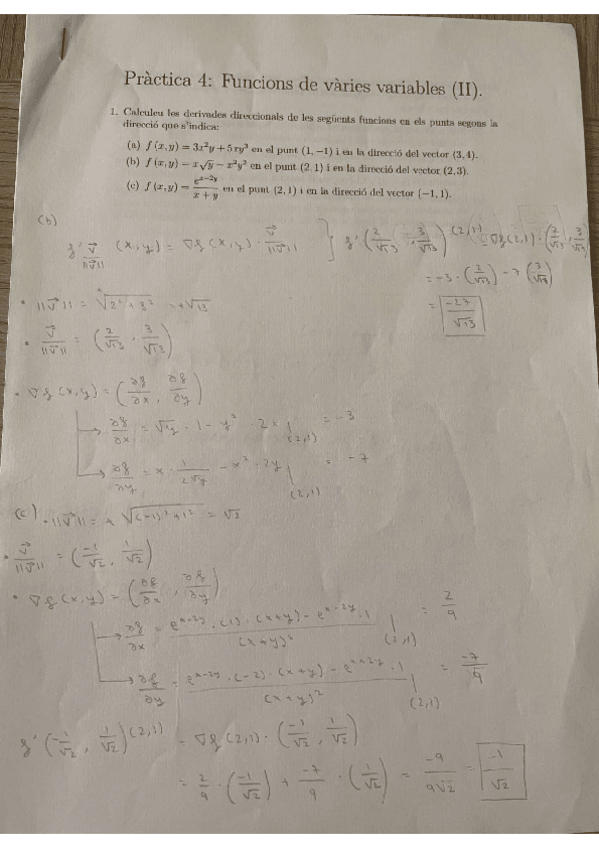 Pràctica 4: Funcions de vàries variables (II).
1. Calculeu les derivades direccionals de les següents funcions en els punts segons la
direcció que s'indica:
(a) f(x,y) = 3x²y + 5xy³ en el punt (1,−1) i en la direcció del vector (3,4).
(b) f(x,y) = x√y − x²y² en el punt (2,1) i en la direcció del vector (2,3).
(c) f(x,y) = e^(x−2y)/(x+y) en el punt (2,1) i en la direcció del vector (−1,1).
(b)
f'_(v⃗/||v⃗||) (x,y) = ∇f(x,y) · v⃗/||v⃗|| ] f'(2/√13, 3/√13)(2,1) = ∇f(2,1)·(2/√13, 3/√13)
= −3·(2/√13) − 7(3/√13)
= −27/√13
• ||v⃗|| = +√(2²+3²) = +√13
• v⃗/||v⃗|| = (2/√13, 3/√13)
• ∇f(x,y) = (∂f/∂x, ∂f/∂y)
→ ∂f/∂x = √y · 1 − y² · 2x |(2,1) = −3
→ ∂f/∂y = x · 1/(2√y) − x² · 2y |(2,1) = −7
(c) • ||v⃗|| = +√((−1)²+1²) = √2
• v⃗/||v⃗|| = (−1/√2, 1/√2)
• ∇f(x,y) = (∂f/∂x, ∂f/∂y)
→ ∂f/∂x = (e^(x−2y)·(1)·(x+y) − e^(x−2y)·1)/(x+y)² |(2,1) = 2/9
→ ∂f/∂y = (e^(x−2y)·(−2)·(x+y) − e^(x−2y)·1)/(x+y)² |(2,1) = −7/9
f'(−1/√2, 1/√2)(2,1) = ∇f(2,1)·(−1/√2, 1/√2)
= 2/9·(−1/√2) + −7/9·(1/√2) = −9/(9√2) = −1/√2